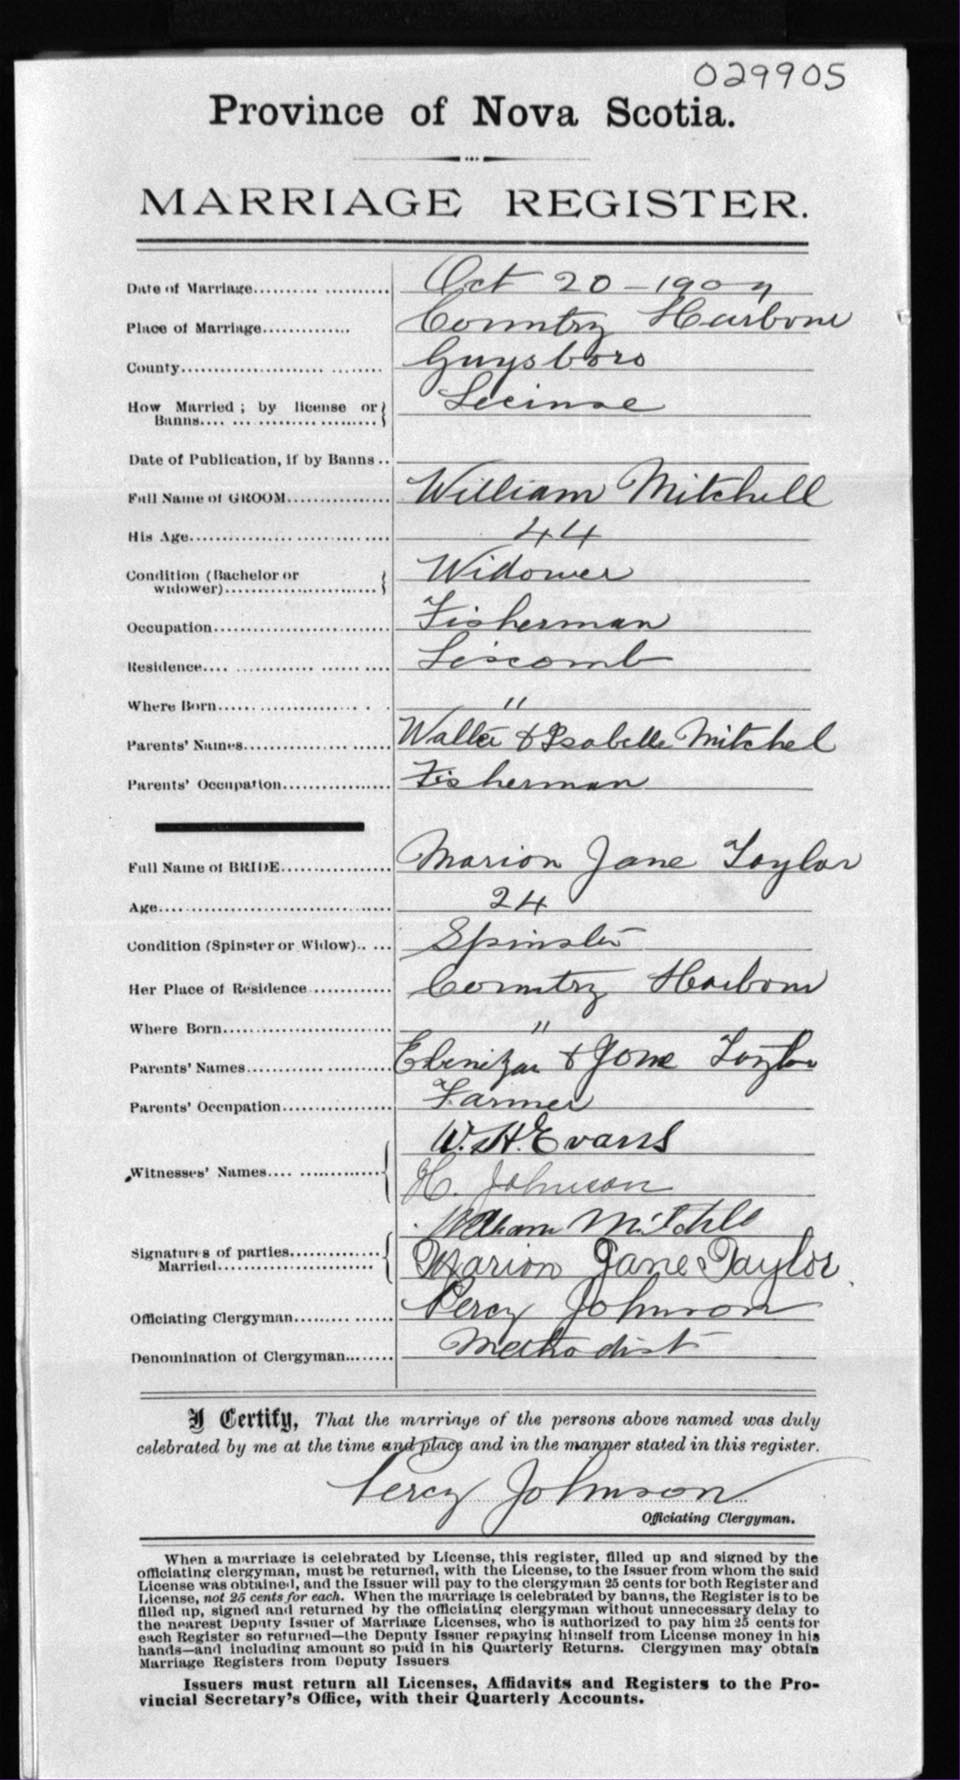 029905
Province of Nova Scotia.
MARRIAGE REGISTER.
Date of Marriage Oct 20 - 1907
Place of Marriage Country Harbour
County Guysboro
How Married; by license or Banns Licinse
Date of Publication, if by Banns
Full Name of GROOM William Mitchell
His Age 44
Condition (Bachelor or widower) Widower
Occupation Fisherman
Residence Liscomb
Where Born "
Parents' Names Walter & Isabelle Mitchel
Parents' Occupation Fisherman
Full Name of BRIDE Marion Jane Taylor
Age 24
Condition (Spinster or Widow) Spinster
Her Place of Residence Country Harbour
Where Born "
Parents' Names Ebenizar & Jane Taylor
Parents' Occupation Farmer
W. H. Evans
Witnesses' Names H. Johnson
William Mitchll
Signatures of parties Married Marion Jane Taylor
Officiating Clergyman Percy Johnson
Denomination of Clergyman Methodist
I Certify, That the marriage of the persons above named was duly
celebrated by me at the time and place and in the manner stated in this register.
Percy Johnson
Officiating Clergyman.
When a marriage is celebrated by License, this register, filled up and signed by the
officiating clergyman, must be returned, with the License, to the Issuer from whom the said
License was obtained, and the Issuer will pay to the clergyman 25 cents for both Register and
License, not 25 cents for each. When the marriage is celebrated by banns, the Register is to be
filled up, signed and returned by the officiating clergyman without unnecessary delay to
the nearest Deputy Issuer of Marriage Licenses, who is authorized to pay him 25 cents for
each Register so returned—the Deputy Issuer repaying himself from License money in his
hands—and including amount so paid in his Quarterly Returns. Clergymen may obtain
Marriage Registers from Deputy Issuers
Issuers must return all Licenses, Affidavits and Registers to the Pro-
vincial Secretary's Office, with their Quarterly Accounts.